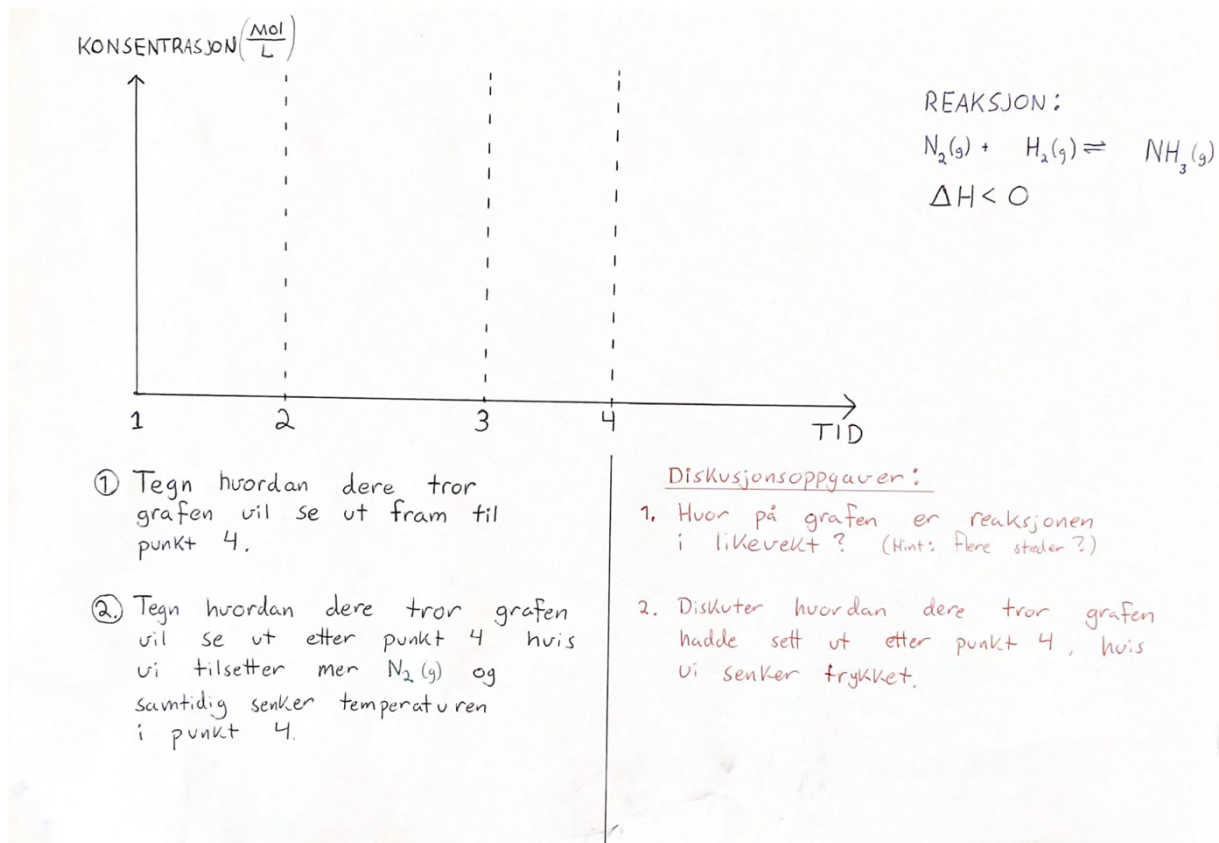 KONSENTRASJON (Mol/L)
REAKSJON:
N₂(g) + H₂(g) ⇌ NH₃(g)
ΔH < 0
1 2 3 4
TID
① Tegn hvordan dere tror
grafen vil se ut fram til
punkt 4.
②. Tegn hvordan dere tror grafen
vil se ut etter punkt 4 hvis
vi tilsetter mer N₂(g) og
samtidig senker temperaturen
i punkt 4.
Diskusjonsoppgaver:
1. Hvor på grafen er reaksjonen
i likevekt? (Hint: flere steder?)
2. Diskuter hvordan dere tror grafen
hadde sett ut etter punkt 4, hvis
vi senker trykket.